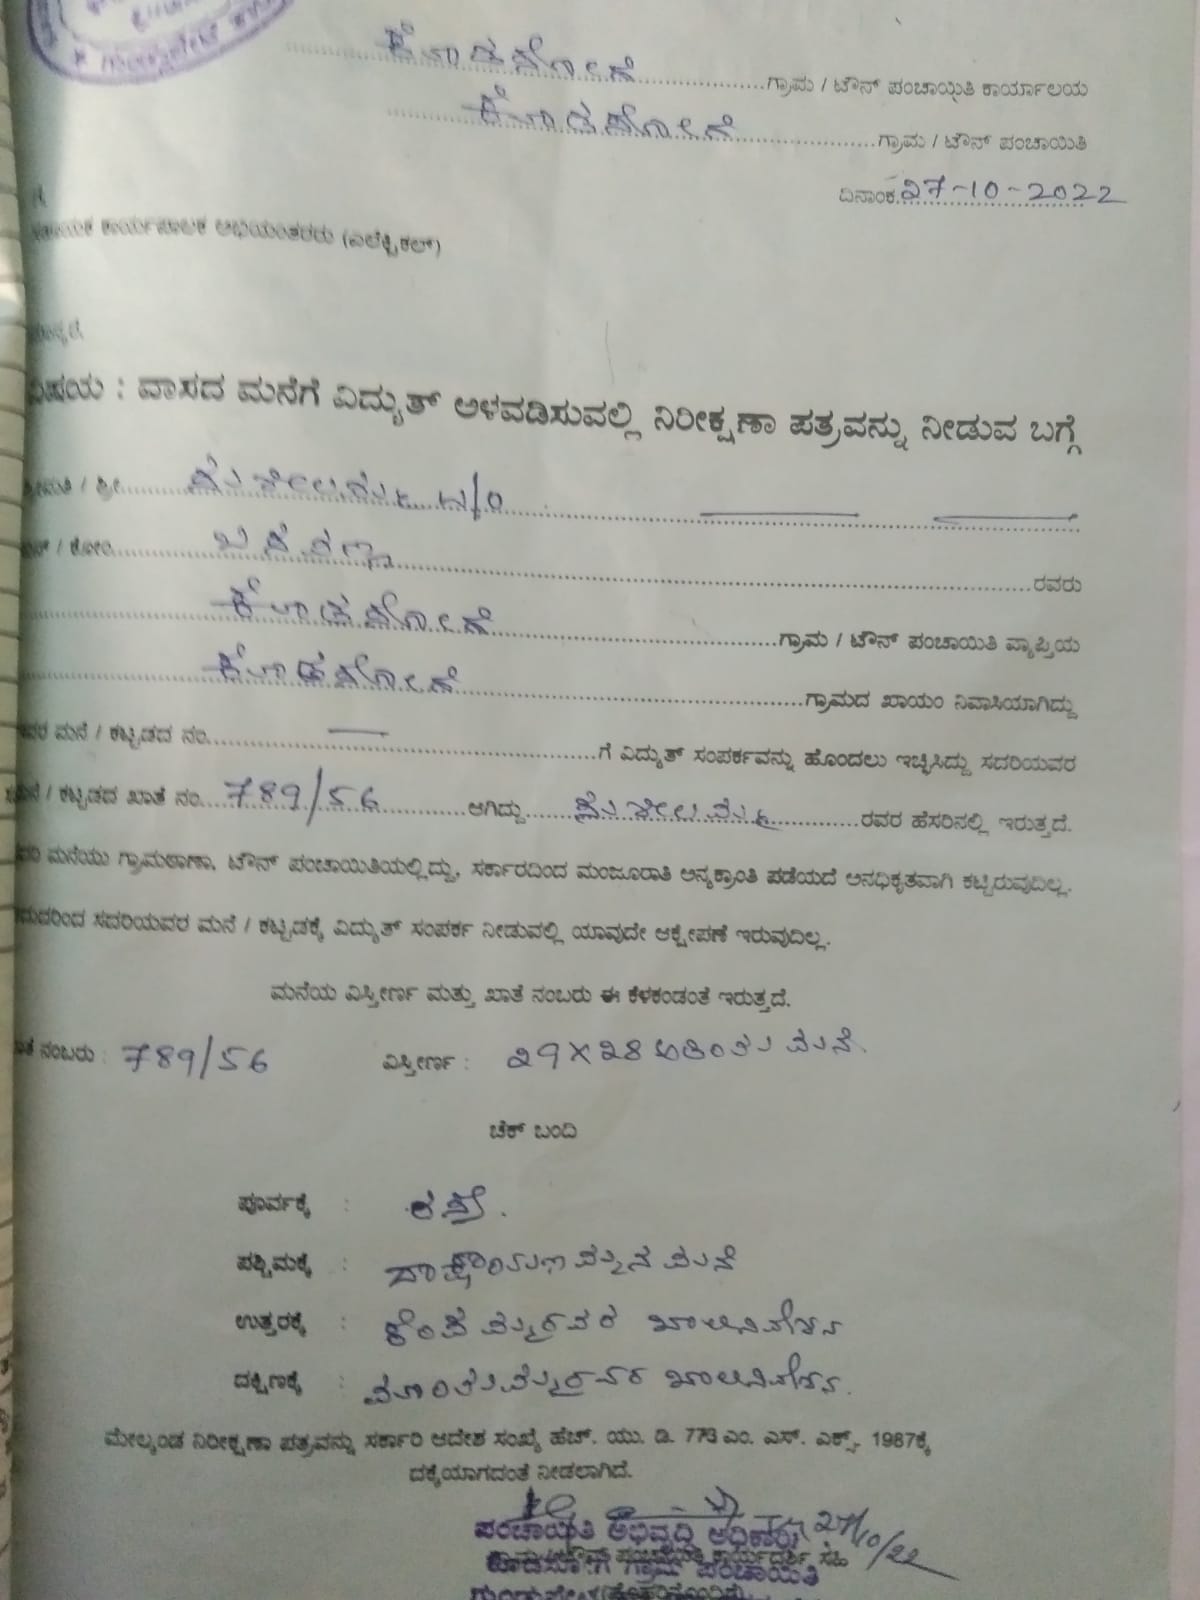 ಕೊಡಸೋಗೆ ಗ್ರಾಮ / ಟೌನ್ ಪಂಚಾಯಿತಿ ಕಾರ್ಯಾಲಯ
ಕೊಡಸೋಗೆ ಗ್ರಾಮ / ಟೌನ್ ಪಂಚಾಯಿತಿ
ದಿನಾಂಕ 27-10-2022
ಕಾರ್ಯಪಾಲಕ ಅಭಿಯಂತರರು (ಎಲೆಕ್ಟ್ರಿಕಲ್)
ವಿಷಯ : ವಾಸದ ಮನೆಗೆ ವಿದ್ಯುತ್ ಅಳವಡಿಸುವಲ್ಲಿ ನಿರೀಕ್ಷಣಾ ಪತ್ರವನ್ನು ನೀಡುವ ಬಗ್ಗೆ
ಶ್ರೀಮತಿ / ಶ್ರೀ ಸುಶೀಲಮ್ಮ
ಕೋಂ ಬಸವಣ್ಣ ರವರು
ಕೊಡಸೋಗೆ ಗ್ರಾಮ / ಟೌನ್ ಪಂಚಾಯಿತಿ ವ್ಯಾಪ್ತಿಯ
ಕೊಡಸೋಗೆ ಗ್ರಾಮದ ಖಾಯಂ ನಿವಾಸಿಯಾಗಿದ್ದು
ಮನೆ / ಕಟ್ಟಡದ ನಂ. — ಗೆ ವಿದ್ಯುತ್ ಸಂಪರ್ಕವನ್ನು ಹೊಂದಲು ಇಚ್ಛಿಸಿದ್ದು ಸದರಿಯವರ
/ ಕಟ್ಟಡದ ಖಾತೆ ನಂ. 789/56 ಆಗಿದ್ದು ಸುಶೀಲಮ್ಮ ರವರ ಹೆಸರಿನಲ್ಲಿ ಇರುತ್ತದೆ.
ಮನೆಯು ಗ್ರಾಮಠಾಣಾ, ಟೌನ್ ಪಂಚಾಯಿತಿಯಲ್ಲಿದ್ದು, ಸರ್ಕಾರದಿಂದ ಮಂಜೂರಾತಿ ಅನ್ಯಕ್ರಾಂತಿ ಪಡೆಯದೆ ಅನಧಿಕೃತವಾಗಿ ಕಟ್ಟಿರುವುದಿಲ್ಲ.
ಸದರಿಯವರ ಮನೆ / ಕಟ್ಟಡಕ್ಕೆ ವಿದ್ಯುತ್ ಸಂಪರ್ಕ ನೀಡುವಲ್ಲಿ ಯಾವುದೇ ಆಕ್ಷೇಪಣೆ ಇರುವುದಿಲ್ಲ.
ಮನೆಯ ವಿಸ್ತೀರ್ಣ ಮತ್ತು ಖಾತೆ ನಂಬರು ಈ ಕೆಳಕಂಡಂತೆ ಇರುತ್ತದೆ.
ನಂಬರು : 789/56 ವಿಸ್ತೀರ್ಣ : 29X28 ಮನೆ.
ಚೆಕ್ ಬಂದಿ
ಪೂರ್ವಕ್ಕೆ : ರಸ್ತೆ.
ಪಶ್ಚಿಮಕ್ಕೆ : ದಾಕ್ಷಾಯಿಣಮ್ಮನ ಮನೆ
ಉತ್ತರಕ್ಕೆ : ಖಾಲಿನಿವೇಶನ
ದಕ್ಷಿಣಕ್ಕೆ : ಖಾಲಿನಿವೇಶನ.
ಮೇಲ್ಕಂಡ ನಿರೀಕ್ಷಣಾ ಪತ್ರವನ್ನು ಸರ್ಕಾರಿ ಆದೇಶ ಸಂಖ್ಯೆ ಹೆಚ್. ಯು. ಡಿ. 773 ಎಂ. ಎಸ್. ಎಕ್ಸ್. 1987ಕ್ಕೆ
ದಕ್ಕೆಯಾಗದಂತೆ ನೀಡಲಾಗಿದೆ.
27/10/22
ಪಂಚಾಯಿತಿ ಅಭಿವೃದ್ಧಿ ಅಧಿಕಾರಿ
ಗ್ರಾಮ ಪಂಚಾಯಿತಿ